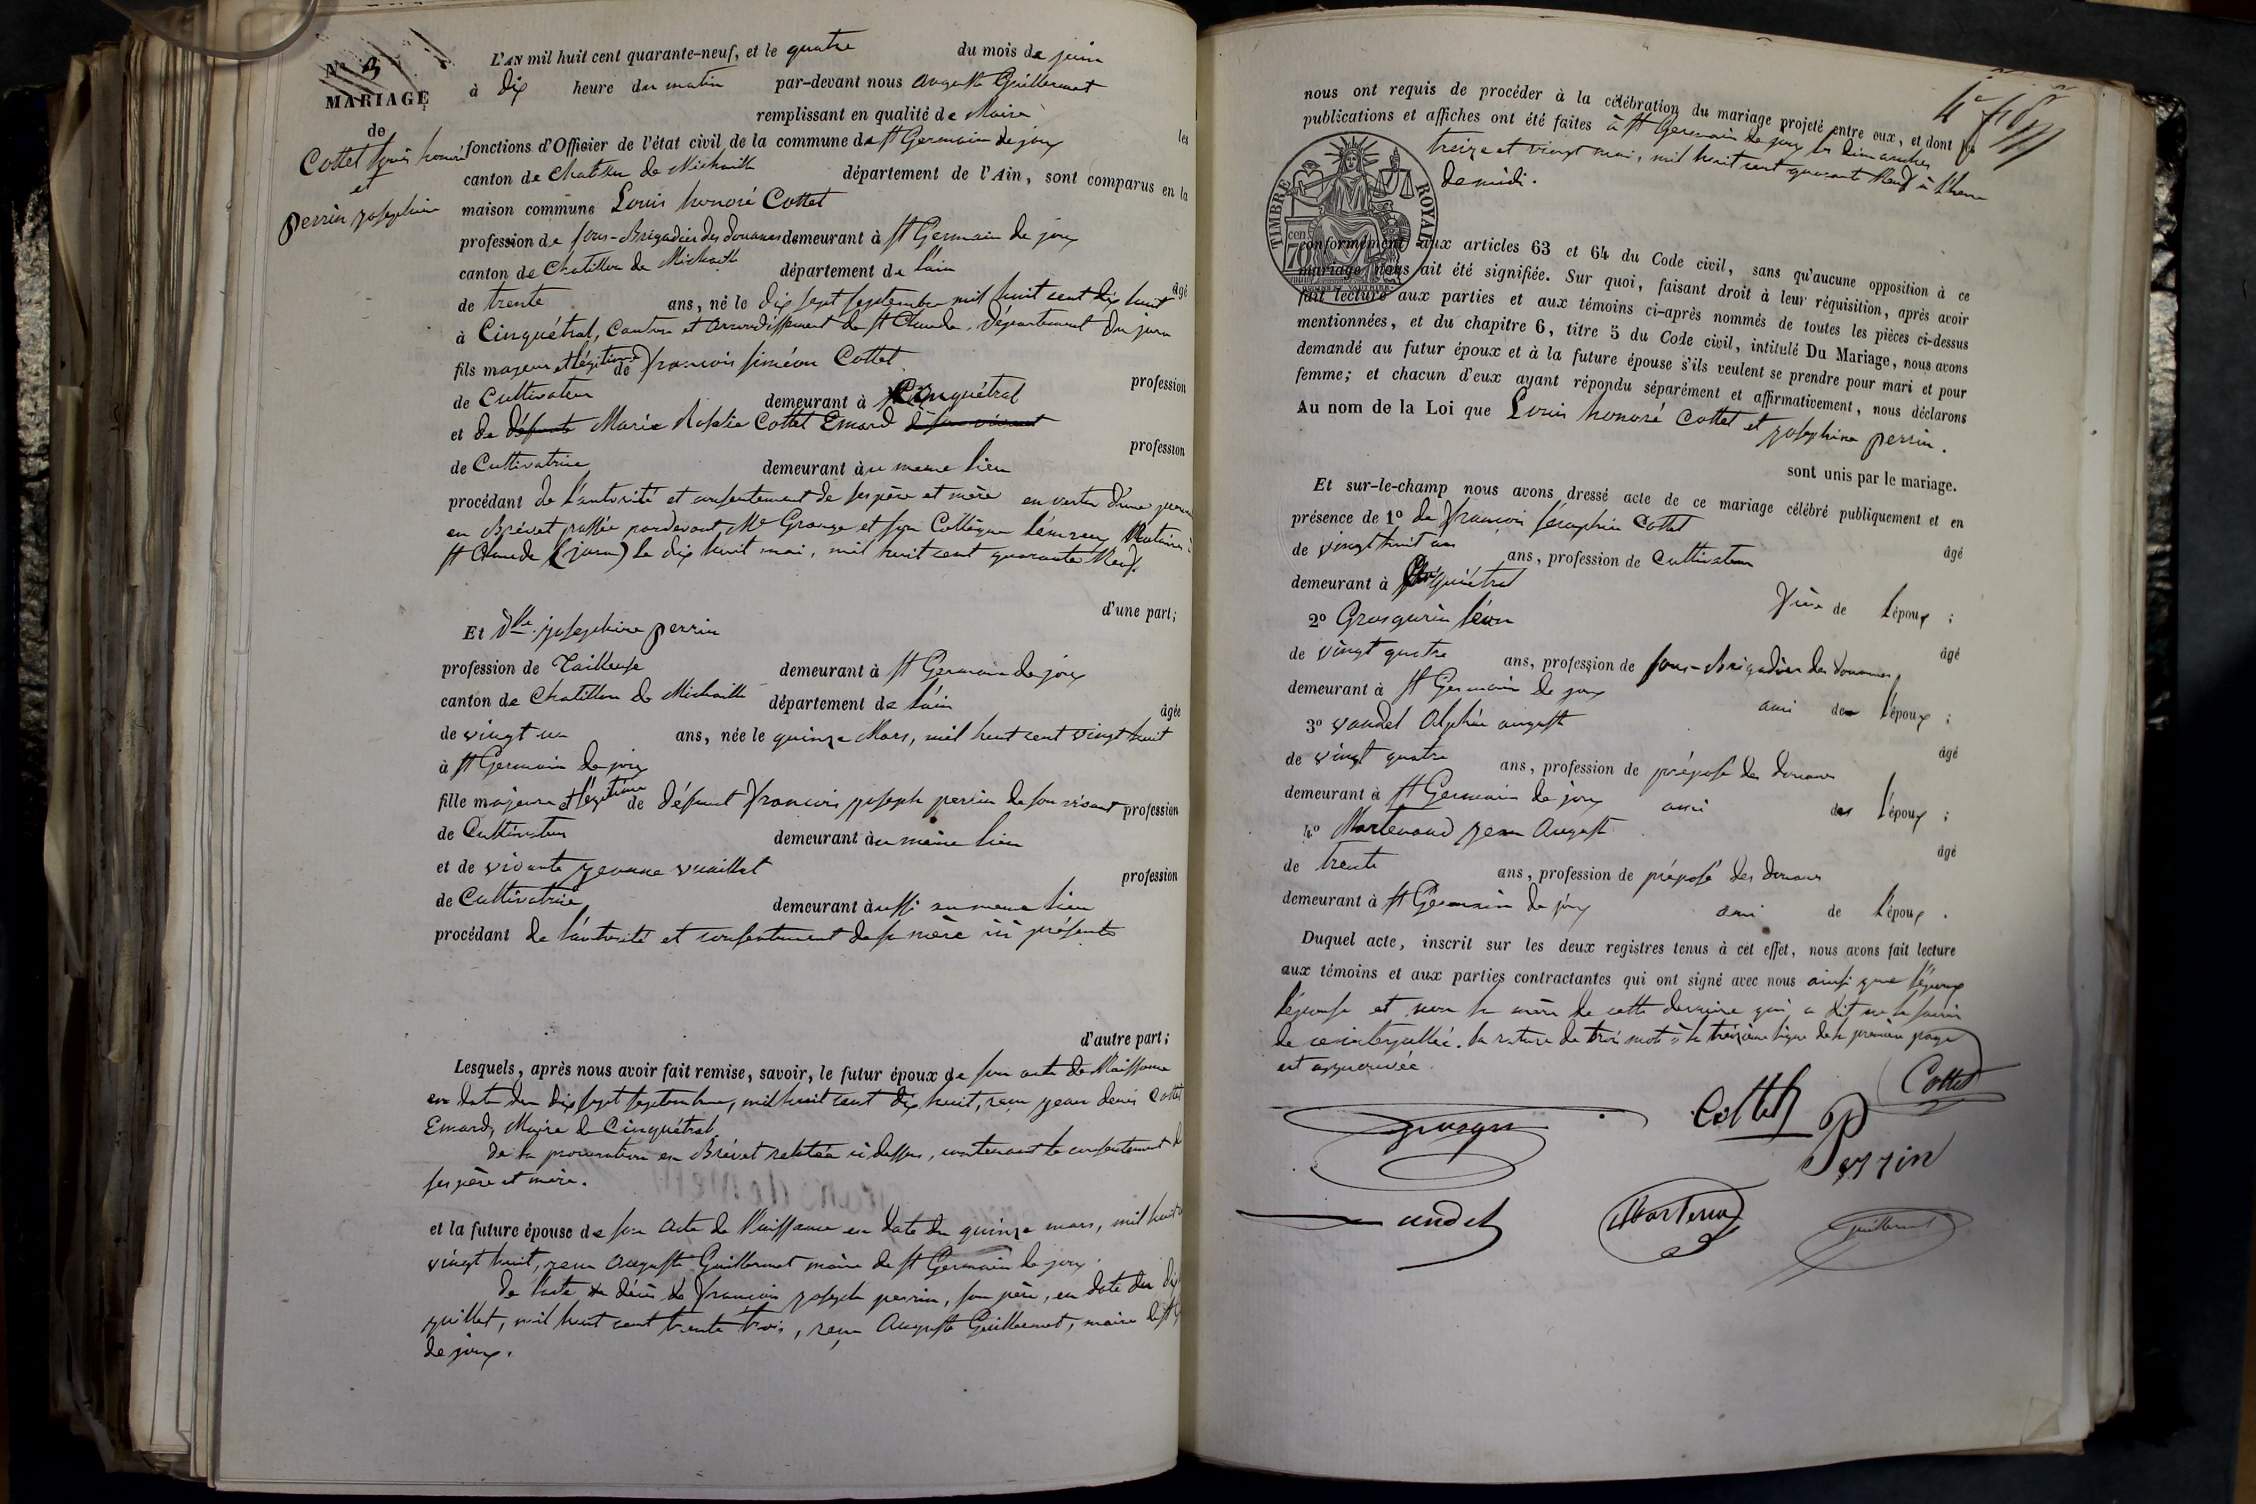 N° 3
MARIAGE
de
Cottet Louis honoré
et
Perrin josephine
L'AN mil huit cent quarante-neuf, et le quatre du mois de juin
à dix heure du matin par-devant nous auguste Guillermet
remplissant en qualité de Maire les
fonctions d'Officier de l'état civil de la commune de St Germain de joux
canton de Chatillon de Michaille département de l'Ain, sont comparus en la
maison commune Louis honoré Cottet
profession de sous-Brigadier des douanes demeurant à St Germain de joux
canton de Chatillon de Michaille département de l'ain âgé
de trente ans, né le dix sept septembre mil huit cent dix huit
à Cinquétral, Canton et arrondissement de St Claude, département du jura
fils majeur et légitime de françois siméon Cottet profession
de Cultivateur demeurant à Cinquétral
et de défunte Marie Rosalie Cottet Emard de son vivant profession
de Cultivatrice demeurant au meme lieu
procédant de l'autorité et consentement de ses père et mère en vertu d'une
en Brévet passée pardevant Me Grange et son Collègue Notaires à
St Claude (jura) le dix huit mai, mil huit cent quarante Neuf.
d'une part;
Et Dlle josephine perrin
profession de Tailleuse demeurant à St Germain de joux
canton de Chatillon de Michaille département de l'ain âgée
de vingt un ans, née le quinze Mars, mil huit cent vingt huit
à St Germain de joux
fille majeure et légitime de défunt françois joseph perrin de son vivant profession
de Cultivateur demeurant au même lieu
et de vivante jeanne vuaillat profession
de Cultivatrice demeurant aussi au meme lieu
procédant de l'autorité et consentement de sa mère ici présente
d'autre part;
Lesquels, après nous avoir fait remise, savoir, le futur époux de son acte de Naissance
en date du dix sept septembre, mil huit cent dix huit, reçu jean denis Cottet
Emard, Maire de Cinquétral.
de la procuration en Brévet relatée ci dessus, contenant le consentement de
ses père et mère.
et la future épouse de son acte de Naissance en date du quinze mars, mil huit
vingt huit, reçu Auguste Guillermet maire de St Germain de joux.
de l'acte de décès de françois joseph perrin, son père, en date du dix
juillet, mil huit cent trente trois, reçu Auguste Guillermet, maire de St G
de joux.
nous ont requis de procéder à la célébration du mariage projeté entre eux, et dont les
publications et affiches ont été faites à St Germain de joux les dimanches
treize et vingt mai, mil huit cent quarante Neuf à l'heure
de midi.
TIMBRE ROYAL
70 cen.
conformément aux articles 63 et 64 du Code civil, sans qu'aucune opposition à ce
mariage nous ait été signifiée. Sur quoi, faisant droit à leur réquisition, après avoir
fait lecture aux parties et aux témoins ci-après nommés de toutes les pièces ci-dessus
mentionnées, et du chapitre 6, titre 5 du Code civil, intitulé Du Mariage, nous avons
demandé au futur époux et à la future épouse s'ils veulent se prendre pour mari et pour
femme; et chacun d'eux ayant répondu séparément et affirmativement, nous déclarons
Au nom de la Loi que Louis honoré Cottet et josephine perrin.
sont unis par le mariage.
Et sur-le-champ nous avons dressé acte de ce mariage célébré publiquement et en
présence de 1° de françois séraphin Cottet âgé
de vingt huit ans ans, profession de Cultivateur
demeurant à Cinquétral frère de l'époux ;
2° Grosgurin léon âgé
de vingt quatre ans, profession de sous-brigadier des douanes,
demeurant à St Germain de joux ami de l'époux ;
3° vandel Alphée auguste âgé
de vingt quatre ans, profession de préposé des douanes
demeurant à St Germain de joux ami de l'époux ;
4° Martenaud jean Auguste âgé
de trente ans, profession de préposé des douanes
demeurant à St Germain de joux ami de l'époux .
Duquel acte, inscrit sur les deux registres tenus à cet effet, nous avons fait lecture
aux témoins et aux parties contractantes qui ont signé avec nous ainsi que l'époux
l'épouse et non la mère de cette dernière qui a dit ne le savoir
de ce interpellée. la rature de trois mots à la treizième ligne de la première page
est approuvée.
Cottet
Cottet
Perrin
Guillermet